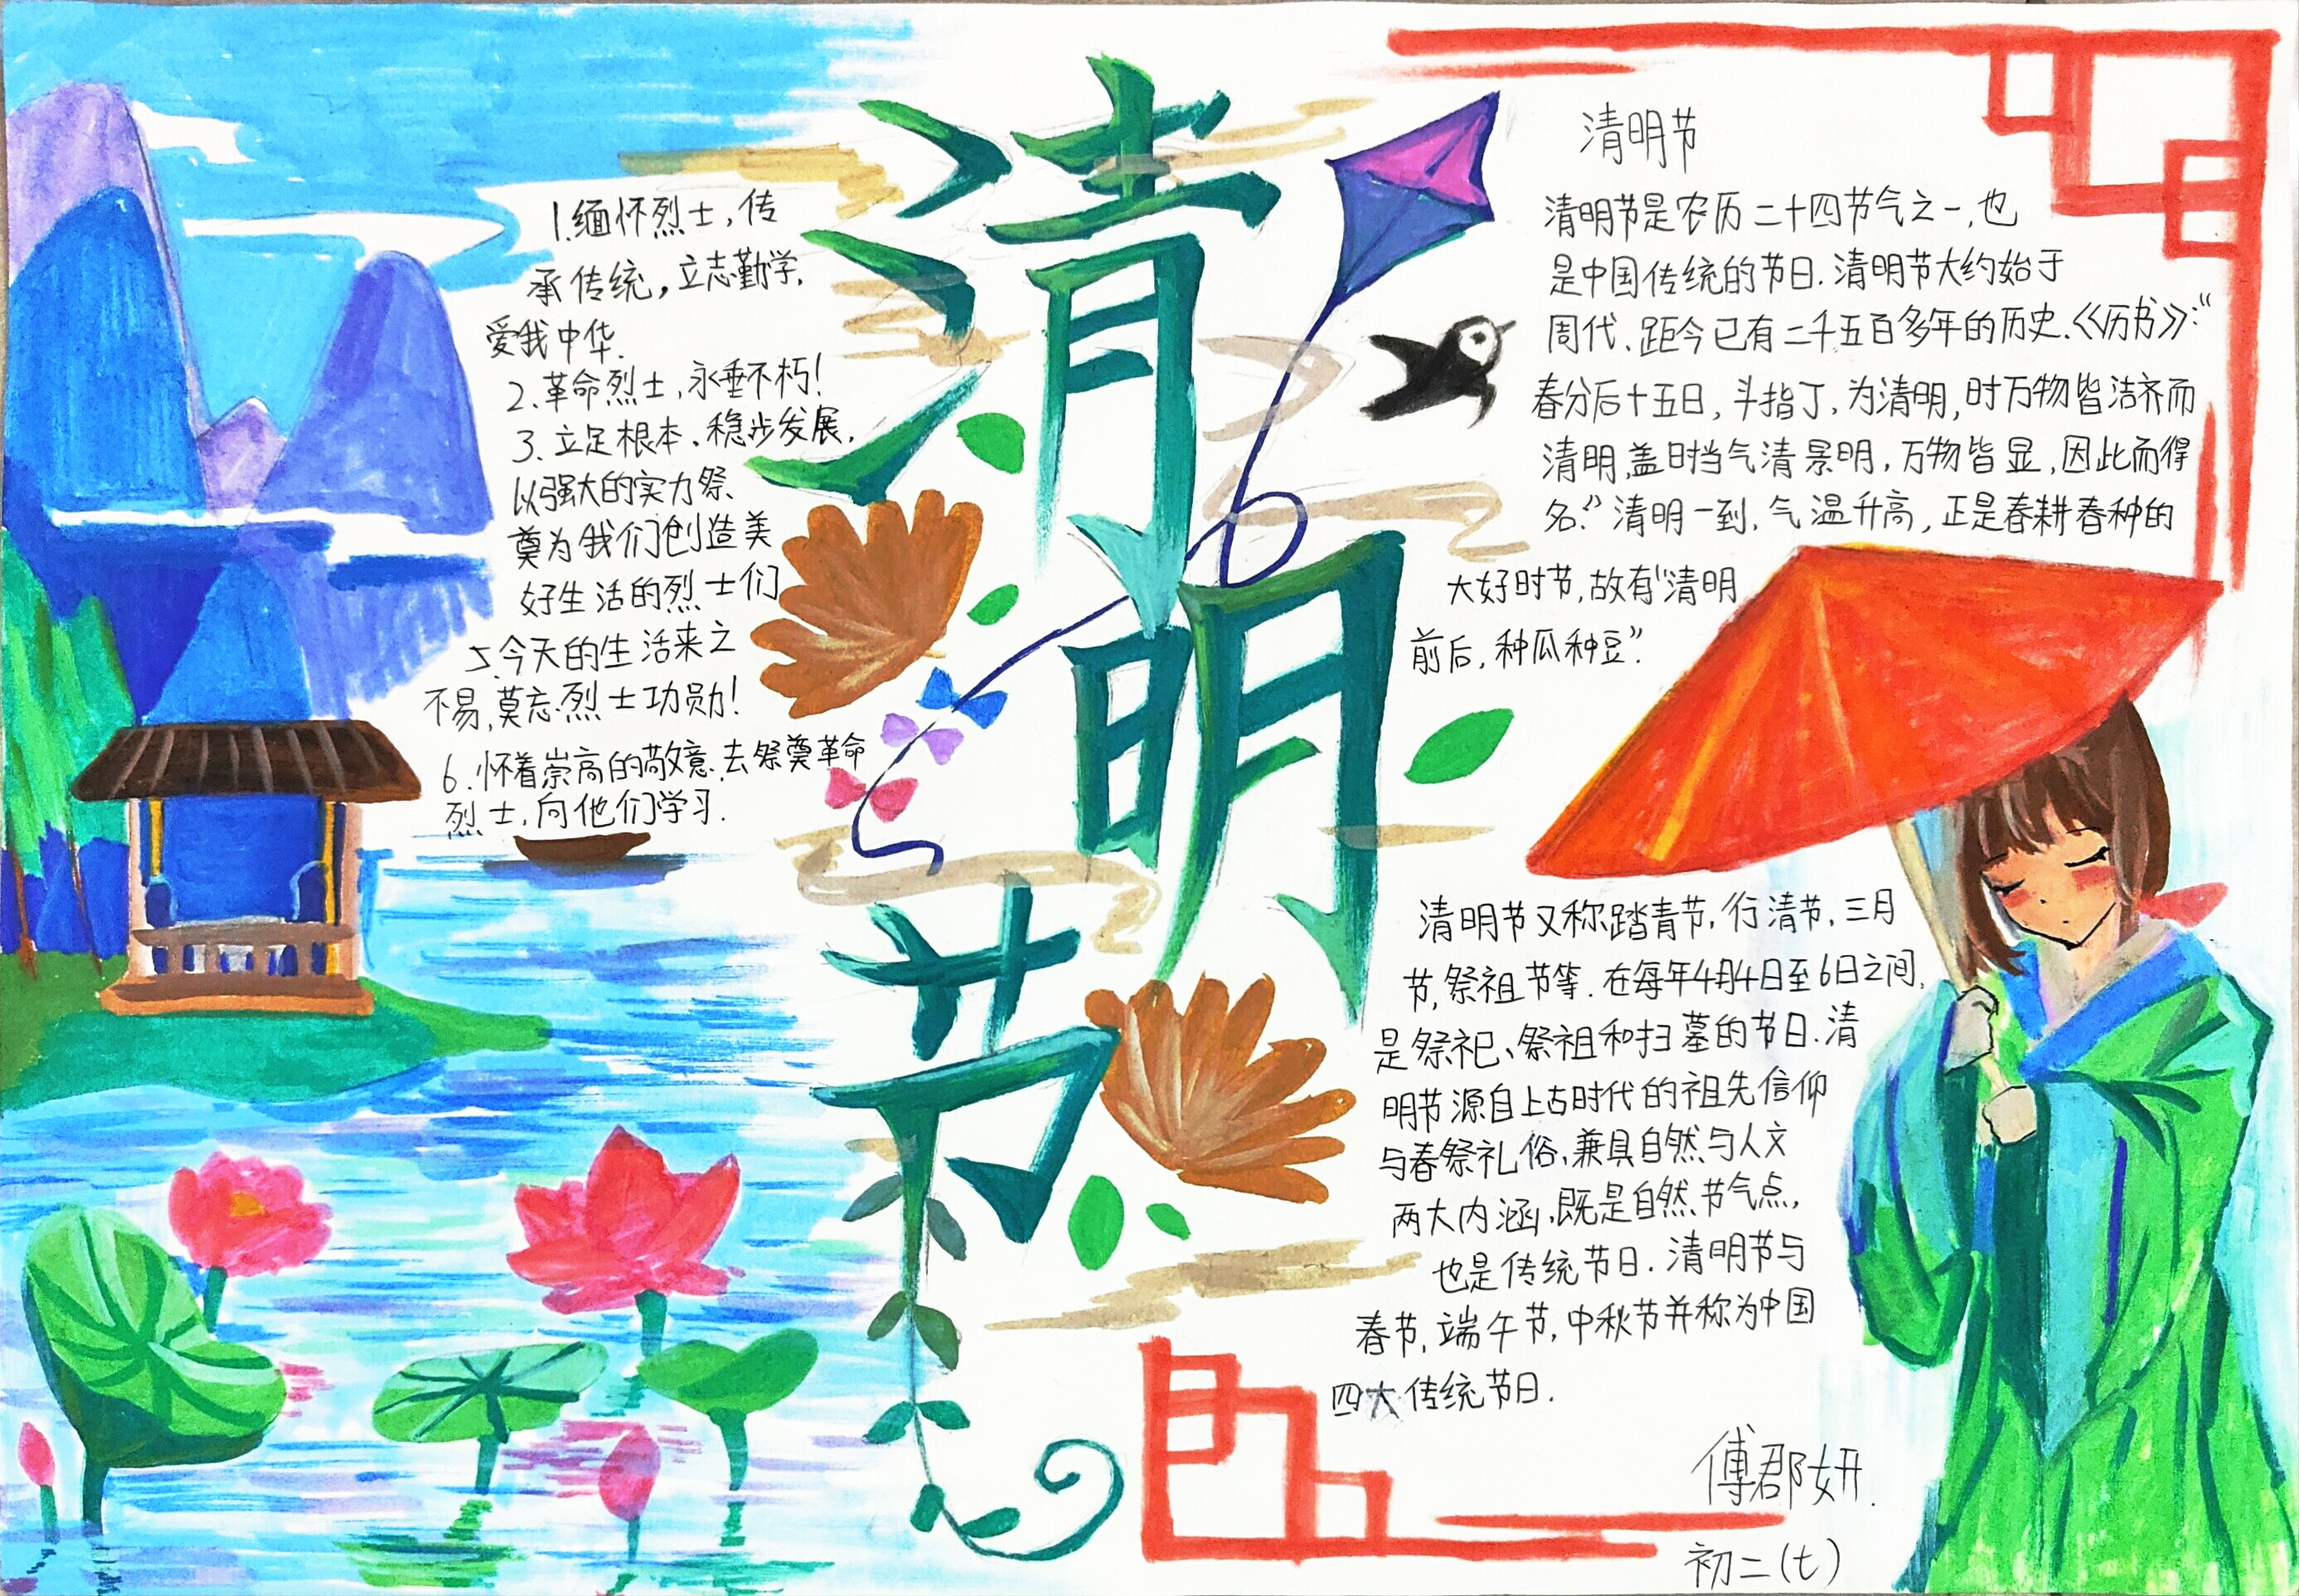 清明节
1.缅怀烈士，传
承传统，立志勤学，
爱我中华.
2.革命烈士，永垂不朽！
3.立足根本、稳步发展，
以强大的实力祭
奠为我们创造美
好生活的烈士们
5.今天的生活来之
不易，莫忘烈士功勋！
6.怀着崇高的敬意，去祭奠革命
烈士，向他们学习.
清明节
清明节是农历二十四节气之一，也
是中国传统的节日.清明节大约始于
周代、距今已有二千五百多年的历史.《历书》："
春分后十五日，斗指丁，为清明，时万物皆洁齐而
清明，盖时当气清景明，万物皆显，因此而得
名."清明一到，气温升高，正是春耕春种的
大好时节，故有"清明
前后，种瓜种豆".
清明节又称踏青节，行清节，三月
节，祭祖节等.在每年4月4日至6日之间，
是祭祀、祭祖和扫墓的节日.清
明节源自上古时代的祖先信仰
与春祭礼俗，兼具自然与人文
两大内涵，既是自然节气点，
也是传统节日.清明节与
春节，端午节，中秋节并称为中国
四大传统节日.
傅郡妍.
初二(七)